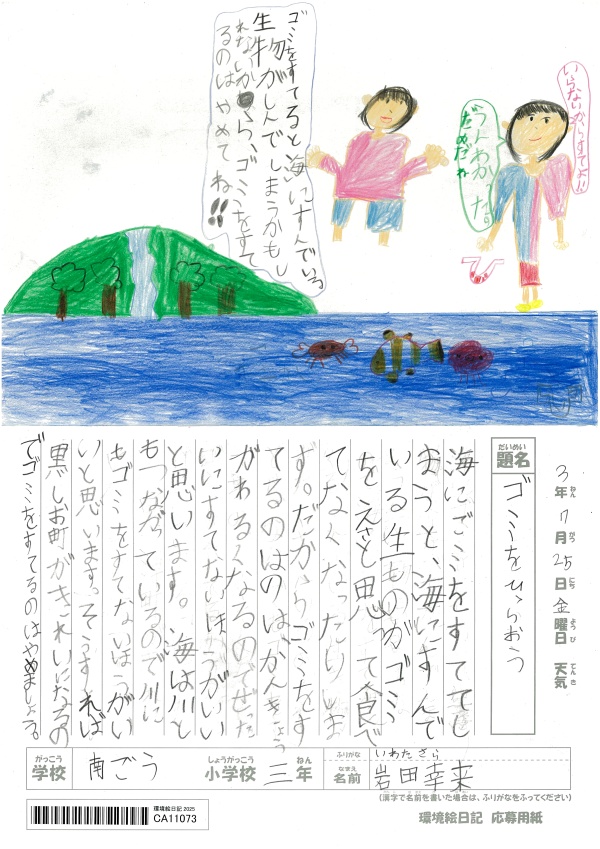 いらないからすてよ!!
うんわかった。
だめだね
ゴミをすてると海にすんでいる
生物がしんでしまうかもし
れないから、ゴミをすて
るのはやめてね!!
3年7月25日金曜日 天気
ねん がつ にち ようび てんき
だいめい
題名
ゴミをひろおう
海にごミをすててし
まうと、海にすんで
いる生ものがゴミ
をえさと思って食べ
てなくなったりしま
す。だからゴミをす
てるのはのはかんきょう
がわるくなるのでぜった
いにすてないほうがいい
と思います。海は川と
もつながっているので川に
もゴミをすてないほうがい
いと思います。そうすれば
黒しお町がきれいになるの
でゴミをすてるのはやめましょう。
がっこう
学校
南ごう
しょうがっこう
小学校
三
ねん
年
ふりがな いわたさら
なまえ
名前
岩田幸来
(漢字で名前を書いた場合は、ふりがなをふってください)
環境絵日記 2025
CA11073
環境絵日記 応募用紙